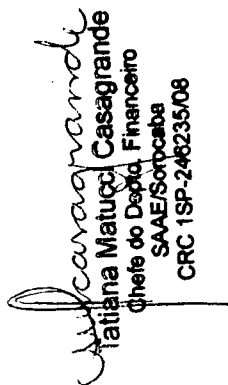 Casagrande
Tatiana Matucci Casagrande
Chefe do Depto. Financeiro
SAAE/Sorocaba
CRC 1SP-246235/08